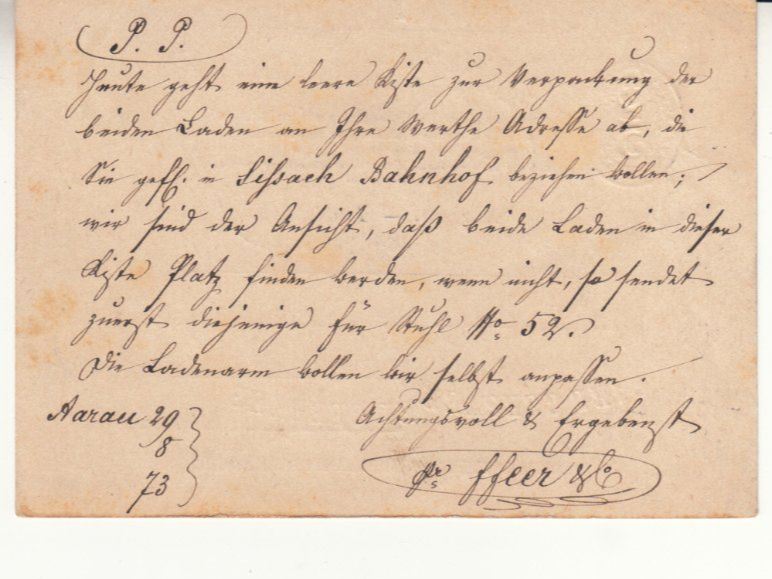 P. P.
Heute geht eine leere Kiste zur Verpackung der
beiden Laden an Ihre werthe Adresse ab, die
Sie gefl. in Sissach Bahnhof beziehen wollen;
wir sind der Ansicht, daß beide Laden in dieser
Kiste Platz finden werden, wenn nicht, so sendet
zuerst diejenige für Stuhl No. 52.
Die Ladenarm wollen wir selbst anpassen.
Aarau 29
8
73
Achtungsvoll & Ergebenst
pr. F. Feer & Co